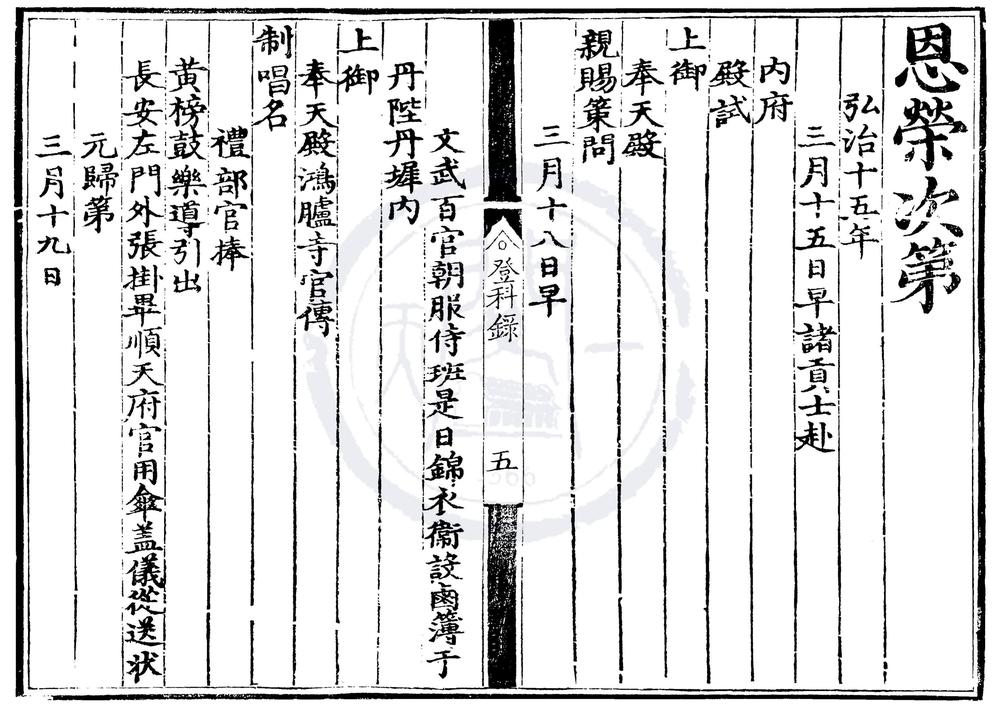 恩榮次第
弘治十五年
三月十五日早諸貢士赴
內府
殿試
上御
奉天殿
親賜策問
三月十八日早
登科錄
五
文武百官朝服侍班是日錦衣衛設鹵簿于
丹陛丹墀內
上御
奉天殿鴻臚寺官傳
制唱名
禮部官捧
黃榜鼓樂導引出
長安左門外張掛畢順天府官用傘盖儀從送状
元歸第
三月十九日